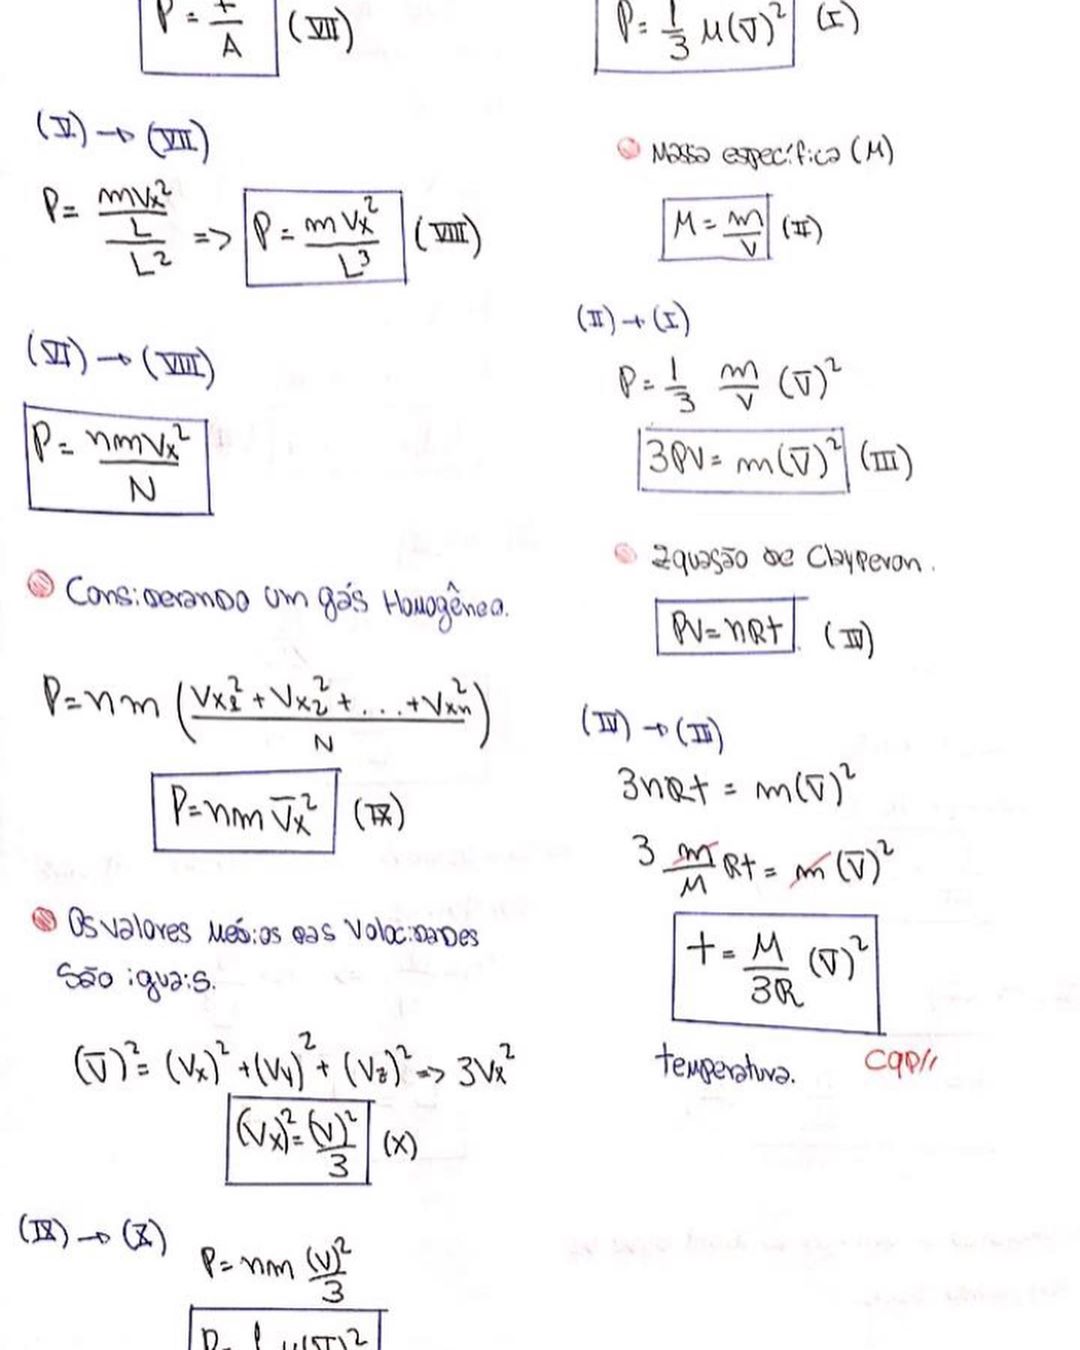 P = F/A (VII)
(V) → (VII)
P = (mVx²/L)/L² => P = mVx²/L³ (VIII)
(VI) → (VIII)
P = nmVx²/N
Considerando um gás Homogêneo.
P = nm (Vx1² + Vx2² + ... + Vxn²)/N
P = nm V̄x² (IX)
Os valores médios das Velocidades
São iguais.
(V̄)² = (Vx)² + (Vy)² + (Vz)² => 3Vx²
(Vx)² = (V)²/3 (X)
(IX) → (X)
P = nm (V)²/3
P = 1/3 μ(V̄)²
P = 1/3 μ(V̄)² (I)
Massa específica (μ)
μ = m/V (II)
(II) → (I)
P = 1/3 m/V (V̄)²
3PV = m(V̄)² (III)
Equação de Clayperon.
PV = nRt (IV)
(IV) → (III)
3nRt = m(V̄)²
3 m/M Rt = m(V̄)²
t = M/3R (V̄)²
temperatura. cqd//